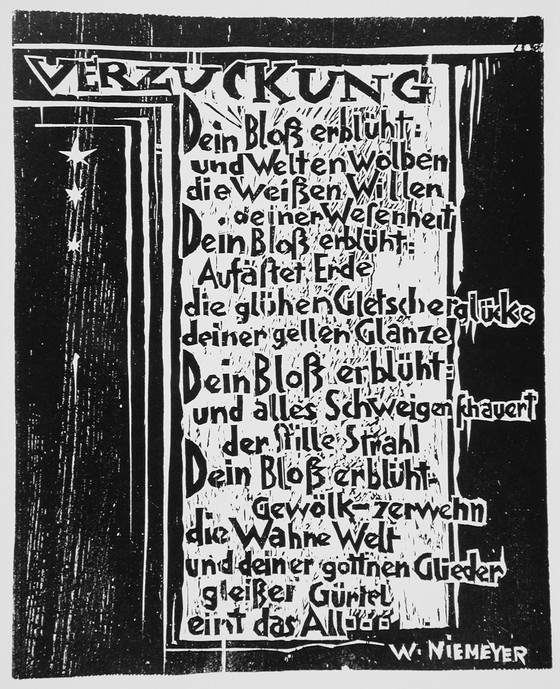 VERZUCKUNG
Dein Bloß erblüht:
und Welten Wölben
die Weißen Willen
deiner Wesenheit
Dein Bloß erblüht:
Aufästet Erde
die glühen Gletscherglücke
deiner gellen Glänze
Dein Bloß erblüht:
und alles Schweigen schauert
der stille Strahl
Dein Bloß erblüht:
Gewölk-zerwehn
die Wahne Welt
und deiner göttnen Glieder
gleißer Gürtel
eint das All
W. NIEMEYER